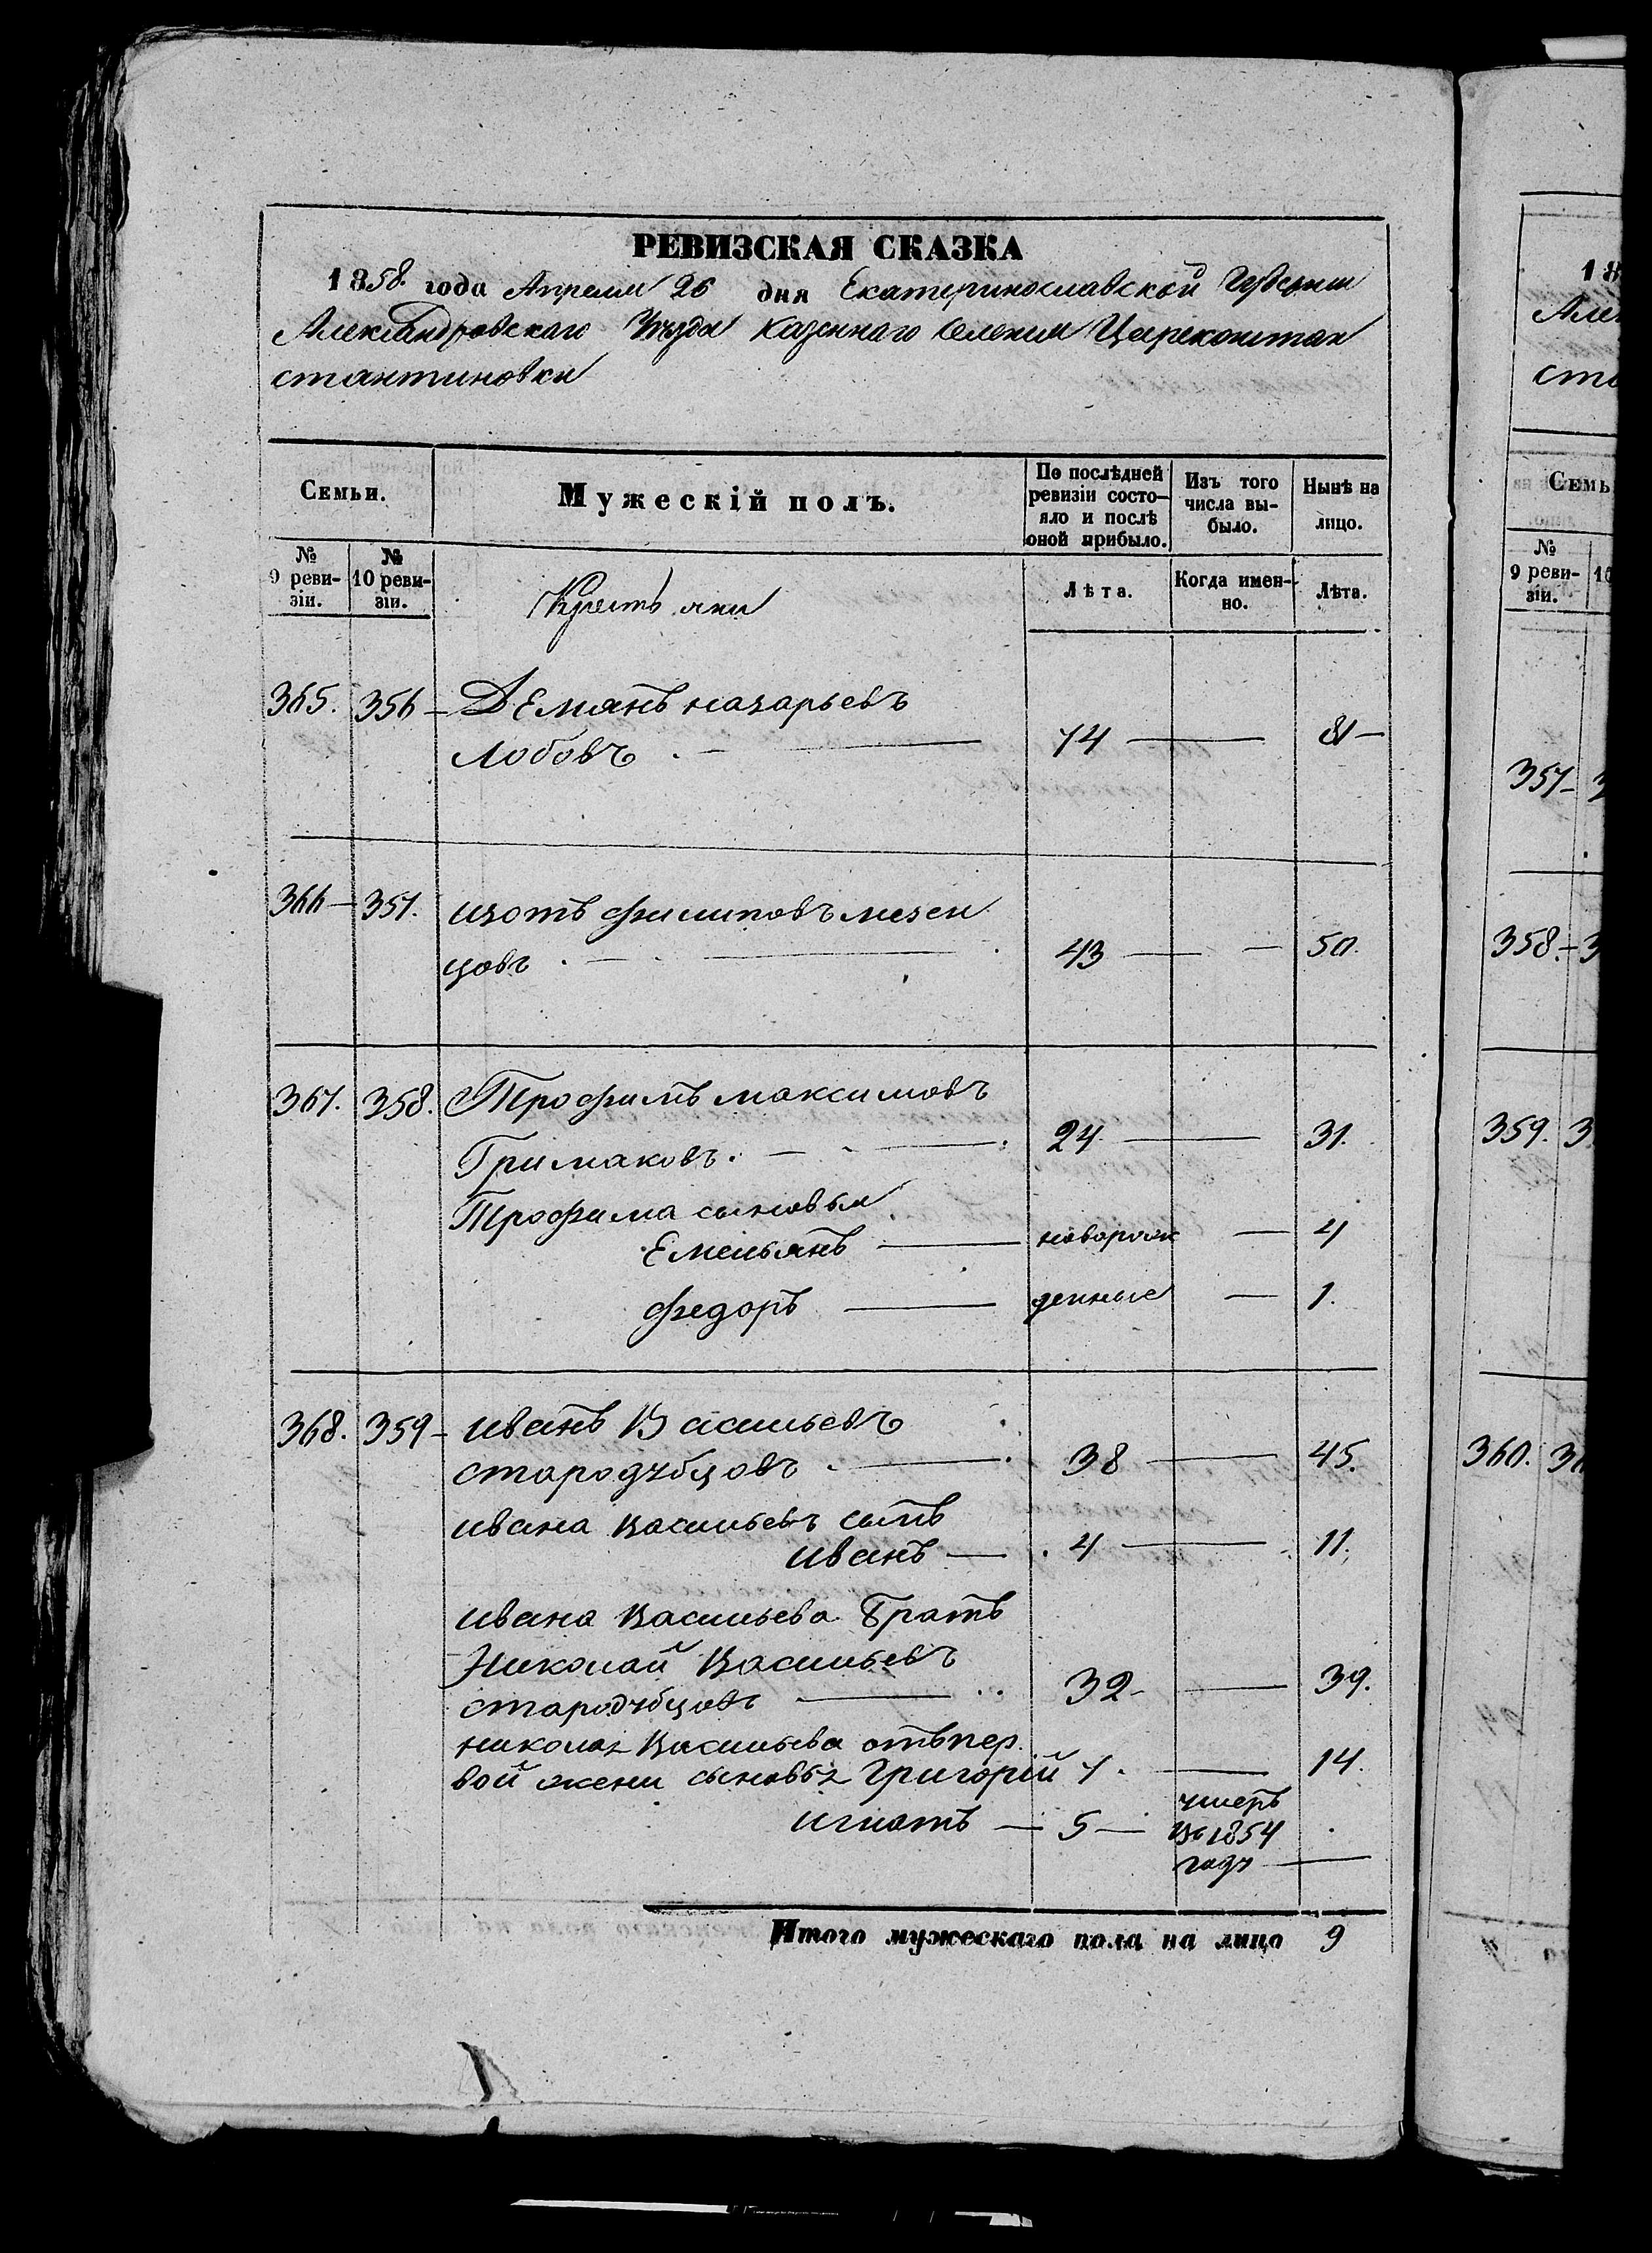 РЕВИЗСКАЯ СКАЗКА
1858. года Апреля 26 дня Екатеринославской Губернии
Александровскаго Уезда Казеннаго Селения Цареконстан
стантиновки
Семьи.
Мужескій полъ.
По послѣдней ревизіи состо-яло и послѣ оной прибыло.
Изъ того числа вы-было.
Нынѣ на лицо.
№ 9 реви-зіи.
№ 10 реви-зіи.
Крестьяни
Лѣта.
Когда имен-но.
Лѣта.
365. 356 – Демянъ назарьевъ
Лобовъ . – 74 — 81 –
366 – 357. изотъ филиповъ мезен
цовъ . – 43 — – 50.
367. 358. Трофимъ максимовъ
Гримаковъ. – 24 — 31.
Трофима сыновья
Емельянъ — новорож – 4
федоръ — денные – 1.
368. 359 – иванъ Васильевъ
стародубцовъ . — 38 — 45.
ивана Васильевъ сынъ
иванъ — 4 — 11.
ивана Васильева Братъ
Николай Васильевъ
стародубцовъ — 32 – — 39.
николая Васильева отъ пер
вой жени сыновья Григорій 7. — 14.
игнатъ — 5 — умеръ
въ 1854
году —
Итого мужескаго пола на лицо 9
18
Але
ста
Семь
№ 9 реви-зіи.
10
357 –
358. –
359. 3
360. 3